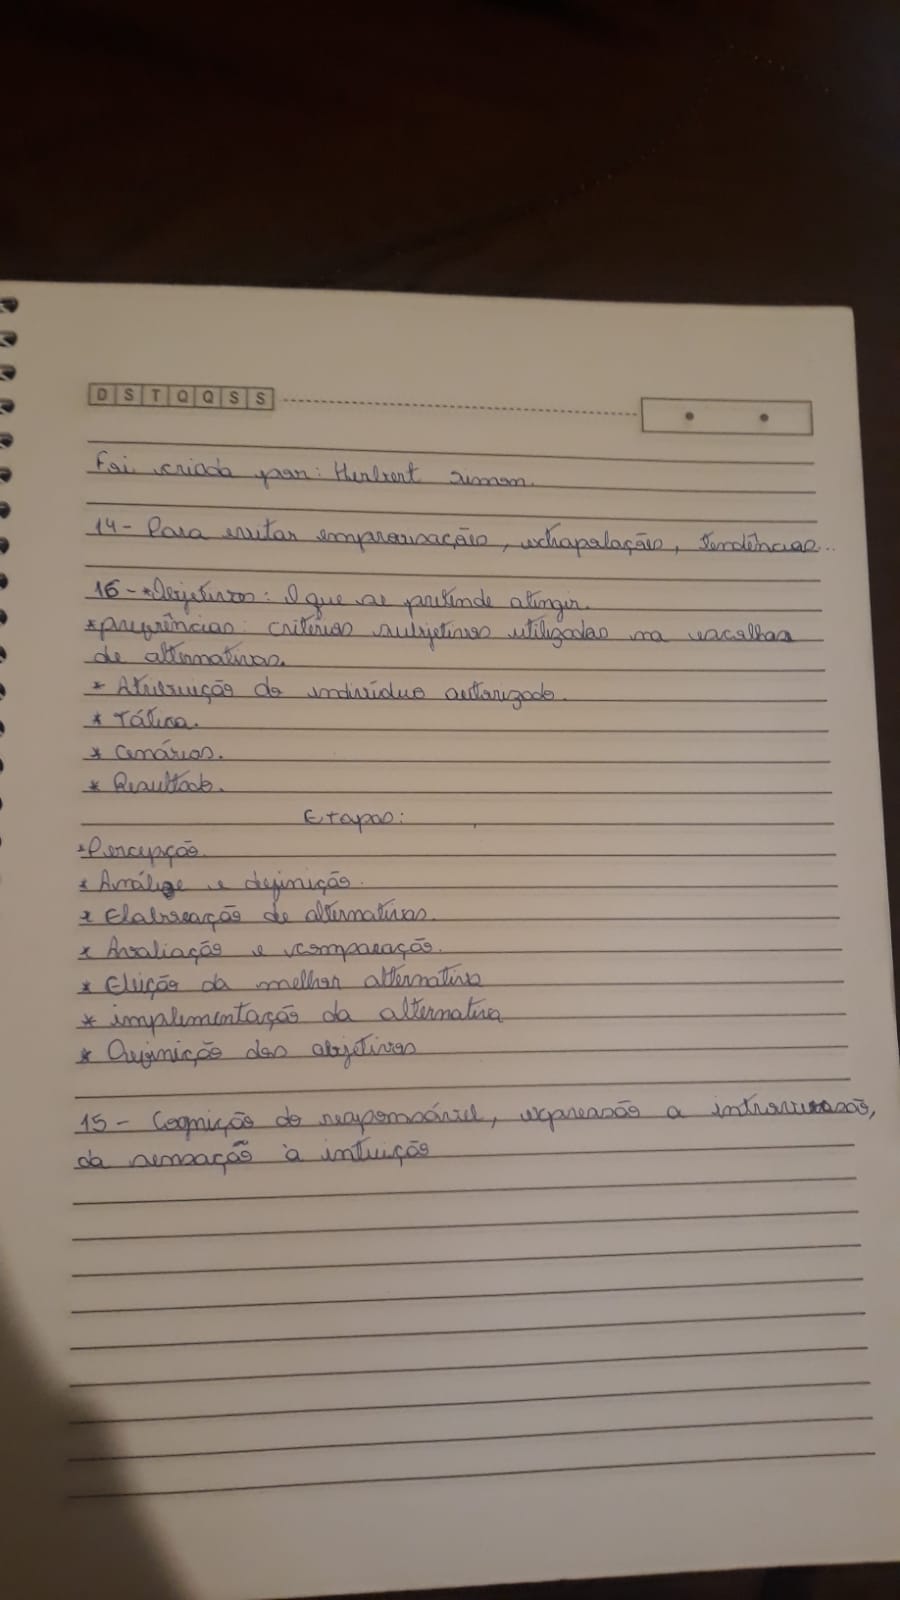 D S T Q Q S S
Foi criada por: Herbert Simon.
14- Para evitar improvisação, extrapolação, tendências...
16- *Objetivos: O que se pretende atingir.
*preferências: critérios subjetivos utilizados na escolha
de alternativas.
* Atribuição do indivíduo autorizado.
* Tática.
* Cenários.
* Resultado.
Etapas:
*Percepção.
* Análise e definição.
* Elaboração de alternativas.
* Avaliação e comparação.
* Eleição da melhor alternativa
* implementação da alternativa
* Definição dos objetivos
15- Cognição do responsável, expressão a
da sensação à intuição